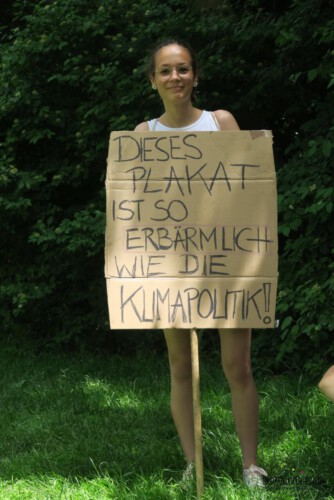 DIESES
PLAKAT
IST SO
ERBÄRMLICH
WIE DIE
KLIMAPOLITIK!